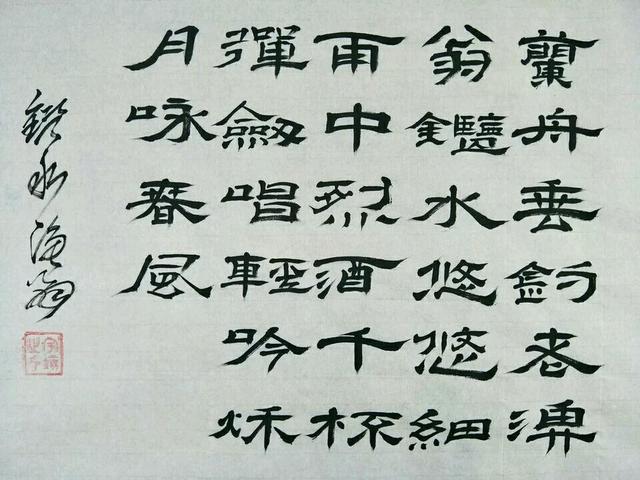 蘭舟垂釣老漁
翁鑑水悠悠細
雨中烈酒千杯
彈劔唱輕吟秌
月咏春風
鑑水漁翁